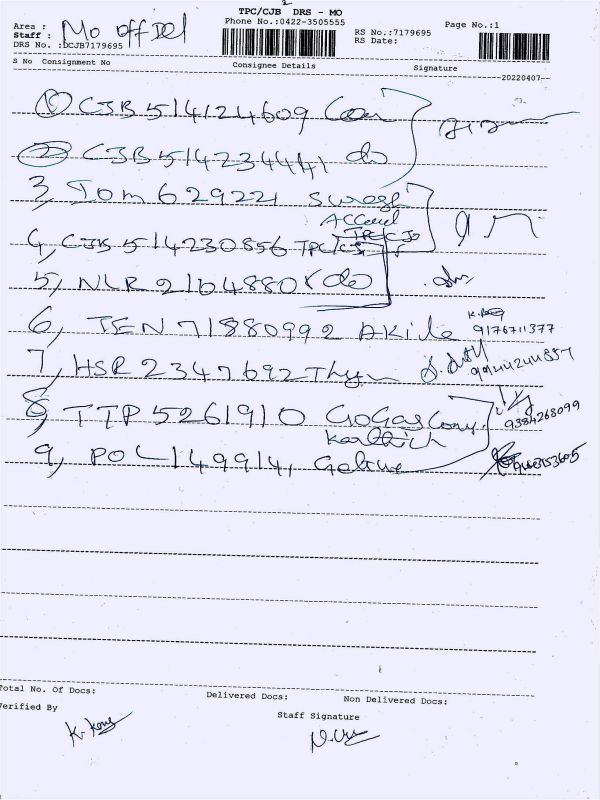 TPC/CJB DRS - MO
Area :
Staff : Mo off Del
Phone No.:0422-3505555
RS No.:7179695
Page No.:1
DRS No. :DCJB7179695
RS Date:
S No Consignment No
Consignee Details
Signature
20220407
1 CJB 514124609
2 CJB 514234441 do
3, Tom 629221 Suresh
Accend
TPC/CJB
4, CJB 514230856 TPC/CJ
5, NLR 21048808 do
6, TEN 71880992 Akila 9176711377
7, HSR 2347692
8, TTP 5261910 GoGas 9384268099
Karthick
9, POL 149914,
Total No. Of Docs:
Delivered Docs:
Non Delivered Docs:
Verified By
Staff Signature